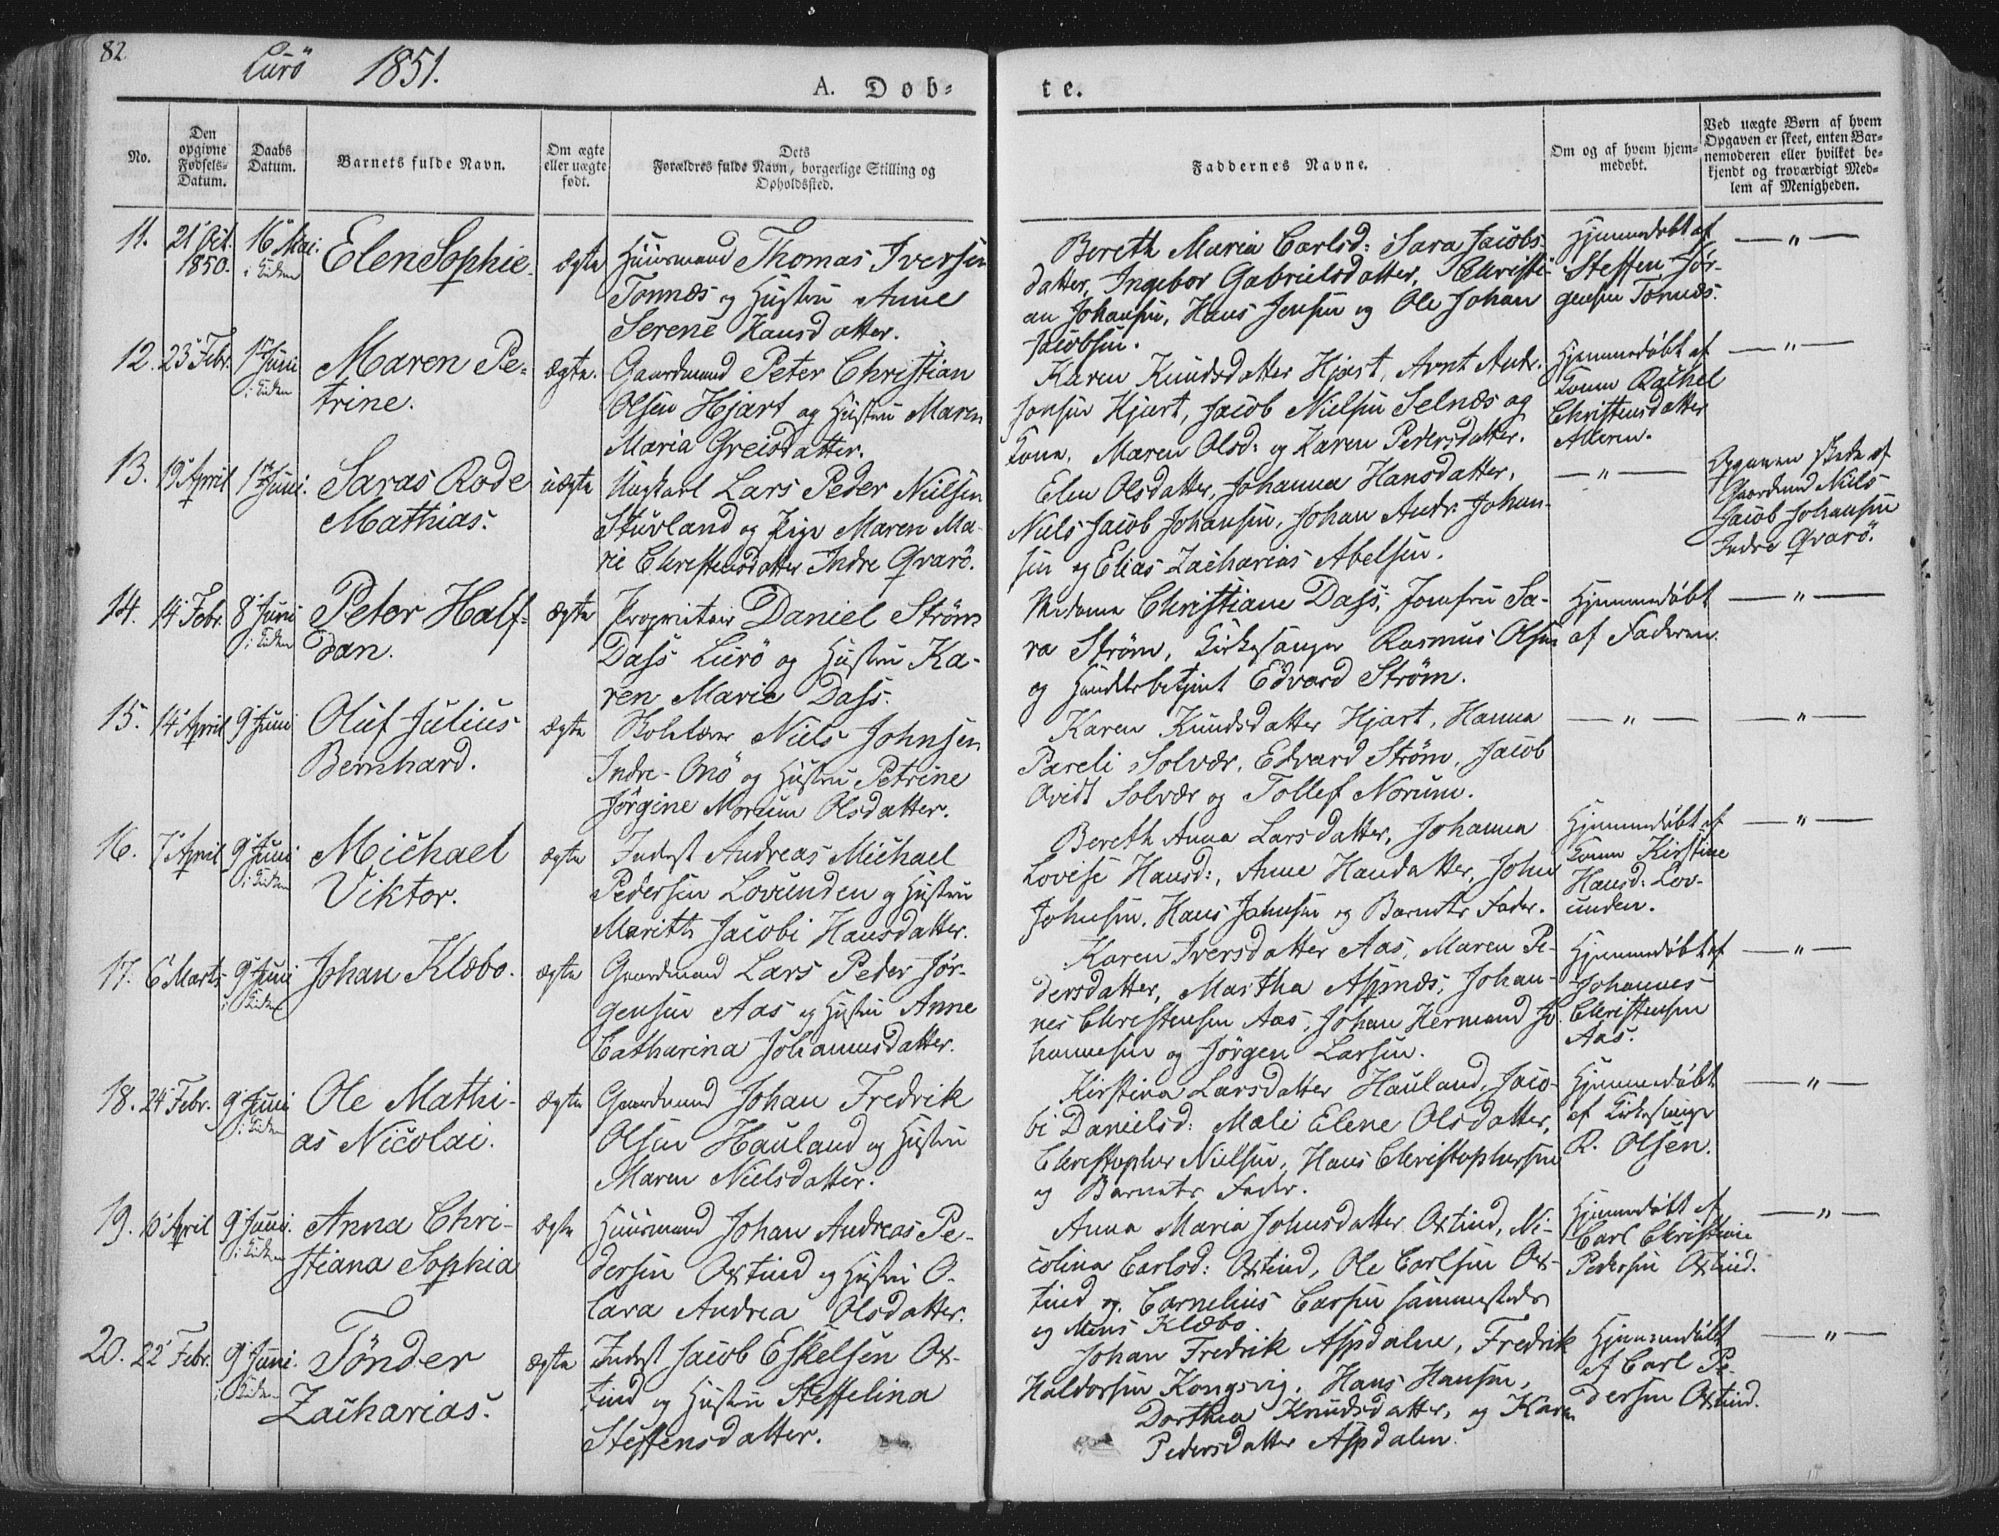 82
Lurö 1851.
A. Døb=
te.
No.
Den opgivne Fødsels-Datum.
Daabs Datum.
Barnets fulde Navn.
Om ægte eller uægte født.
Dets Forældres fulde Navn, borgerlige Stilling og Opholdssted.
Faddernes Navne.
Om og af hvem hjemmedøbt.
Ved uægte Børn af hvem Opgaven er skeet, enten Barnemoderen eller hvilket bekjendt og troværdigt Medlem af Menigheden.
11. 21 Oct. 1850. 16 Mai. i Kirken
Elen Sophie.
ægte
Huusmand Thomas Iversen
Tonnæs og Hustru Anne
Serene Hansdatter.
Bereth Maria Carlsd: Sara Jacobs-
datter, Ingebor Gabrielsdatter, Christi-
an Johansen, Hans Jensen og Ole Johan
Jacobsen.
Hjemmedøbt af
Steffen Jör-
gensen Tonnæs.
— " —
12. 23 Febr. 1 Juni i Kirken
Maren Pe-
trine.
ægte.
Gaardmand Peter Christian
Olsen Hjart og Hustru Maren
Maria Greisdatter.
Karen Knudsdatter Hjart, Arnt Andr.
Jonsen Hjart, Jacob Nielsen Selnæs og
Kone, Maren Olsd: og Karen Pedersdatter.
Hjemmedøbt af
Kone Rachel
Christensdatter
Alteren.
— " —
13. 19 April 1 Juni.
Saras Rode
Mathias.
uægte
Ungkarl Lars Peder Nielsen
Stuvland og Pige Maren Ma-
rie Christensdatter Indre Qvarö.
Elen Olsdatter, Johanna Hansdatter,
Niels Jacob Johansen, Johan Andr. Johan-
sen og Elias Zacharias Abelsen.
— " —
Opgaven skede af
Gaardmand Niels
Jacob Johansen
Indre Qvarö.
14. 14 Febr. 8 Juni i Kirken
Peter Half-
dan.
ægte
Proprietair Daniel Ström
Dass Lurö og Hustru Ka-
ren Marie Dass.
Madame Christiane Dass, Jomfru Sa-
ra Ström, Kirkesanger Rasmus Olsen
og Handelsbetjent Edvard Ström.
Hjemmedøbt
af Faderen.
— " —
15. 14 April 9 Juni
Oluf Julius
Bernhard.
ægte
Niels Johnsen
Indre-Onö og Hustru Petrine
Jörgine Norum Olsdatter.
Karen Knudsdatter Hjart, Hanna
Pareli Solvær, Edvard Ström, Jacob
Qvidt Solvær og Tollef Norum.
— " —
— " —
16. 7 April 9 Juni i Kirken
Michael
Viktor.
ægte
Inderst Andreas Michael
Pedersen Lovunden og Hustru
Marith Jacobi Hansdatter.
Bereth Anna Larsdatter, Johanna
Lovise Hansd:, Anne Hansdatter, John
Johnsen, Hans Johnsen og Barnets Fader.
Hjemmedøbt af
Kone Kirstine
Hansd: Lov-
unden.
— " —
17. 6 Marts 9 Juni i Kirken
Johan Klæbo.
ægte
Gaardmand Lars Peder Jör-
gensen Aas og Hustru Anne
Catharina Johannesdatter.
Karen Iversdatter Aas, Maren Pe-
dersdatter, Martha Aspnæs, Johan-
nes Christensen Aas, Johan Hermand Jo-
hannesen og Jörgen Larsen.
Hjemmedøbt af
Johannes
Christensen
Aas.
— " —
18. 24 Febr. 9 Juni i Kirken
Ole Mathi-
as Nicolai.
ægte
Gaardmand Johan Fredrik
Olsen Hauland og Hustru
Maren Nielsdatter.
Kirstina Larsdatter Hauland, Jaco-
bi Danielsd: Mali Elene Olsdatter,
Christopher Nielsen, Hans Christophersen
og Barnets Fader.
Hjemmedøbt
af Kirkesanger
R. Olsen.
— " —
19. 10 April 9 Juni. i Kirken
Anna Chri-
stiana Sophia
ægte
Huusmand Johan Andreas Pe-
dersen Oxtind og Hustru O-
lava Andrea Olsdatter.
Anna Maria Johnsdatter Oxtind, Ni-
colina Carlsd: Oxtind, Ole Carlsen Ox-
tind og Cornelius Carsen sammesteds
og Mons Klæbo.
Hjemmedøbt af
Carl Christian
Pedersen Oxtind.
— " —
20. 22 Febr. 9 Juni. i Kirken
Tönder
Zacharias.
ægte
Inderst Jacob Eskelsen Ox-
tind og Hustru Steffelina
Steffensdatter.
Johan Fredrik Aspdalen, Fredrik
Haldorsen Kongsvig, Hans Hansen,
Dorthea Knudsdatter, og Karen
Pedersdatter Aspdalen.
Hjemmedøbt
af Carl Pe-
dersen Oxtind.
— " —